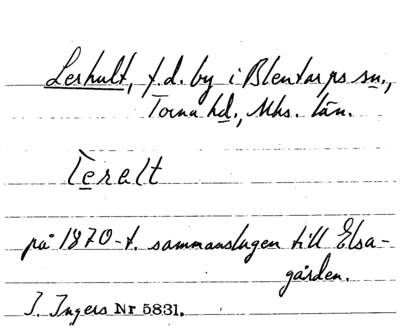 Lerhult, f.d. by i Blentarps sn.,
Torna hd., Mhs. län.
Terelt
på 1870-t. sammanslagen till Elsa-
gården.
I. Ingers Nr 5831.